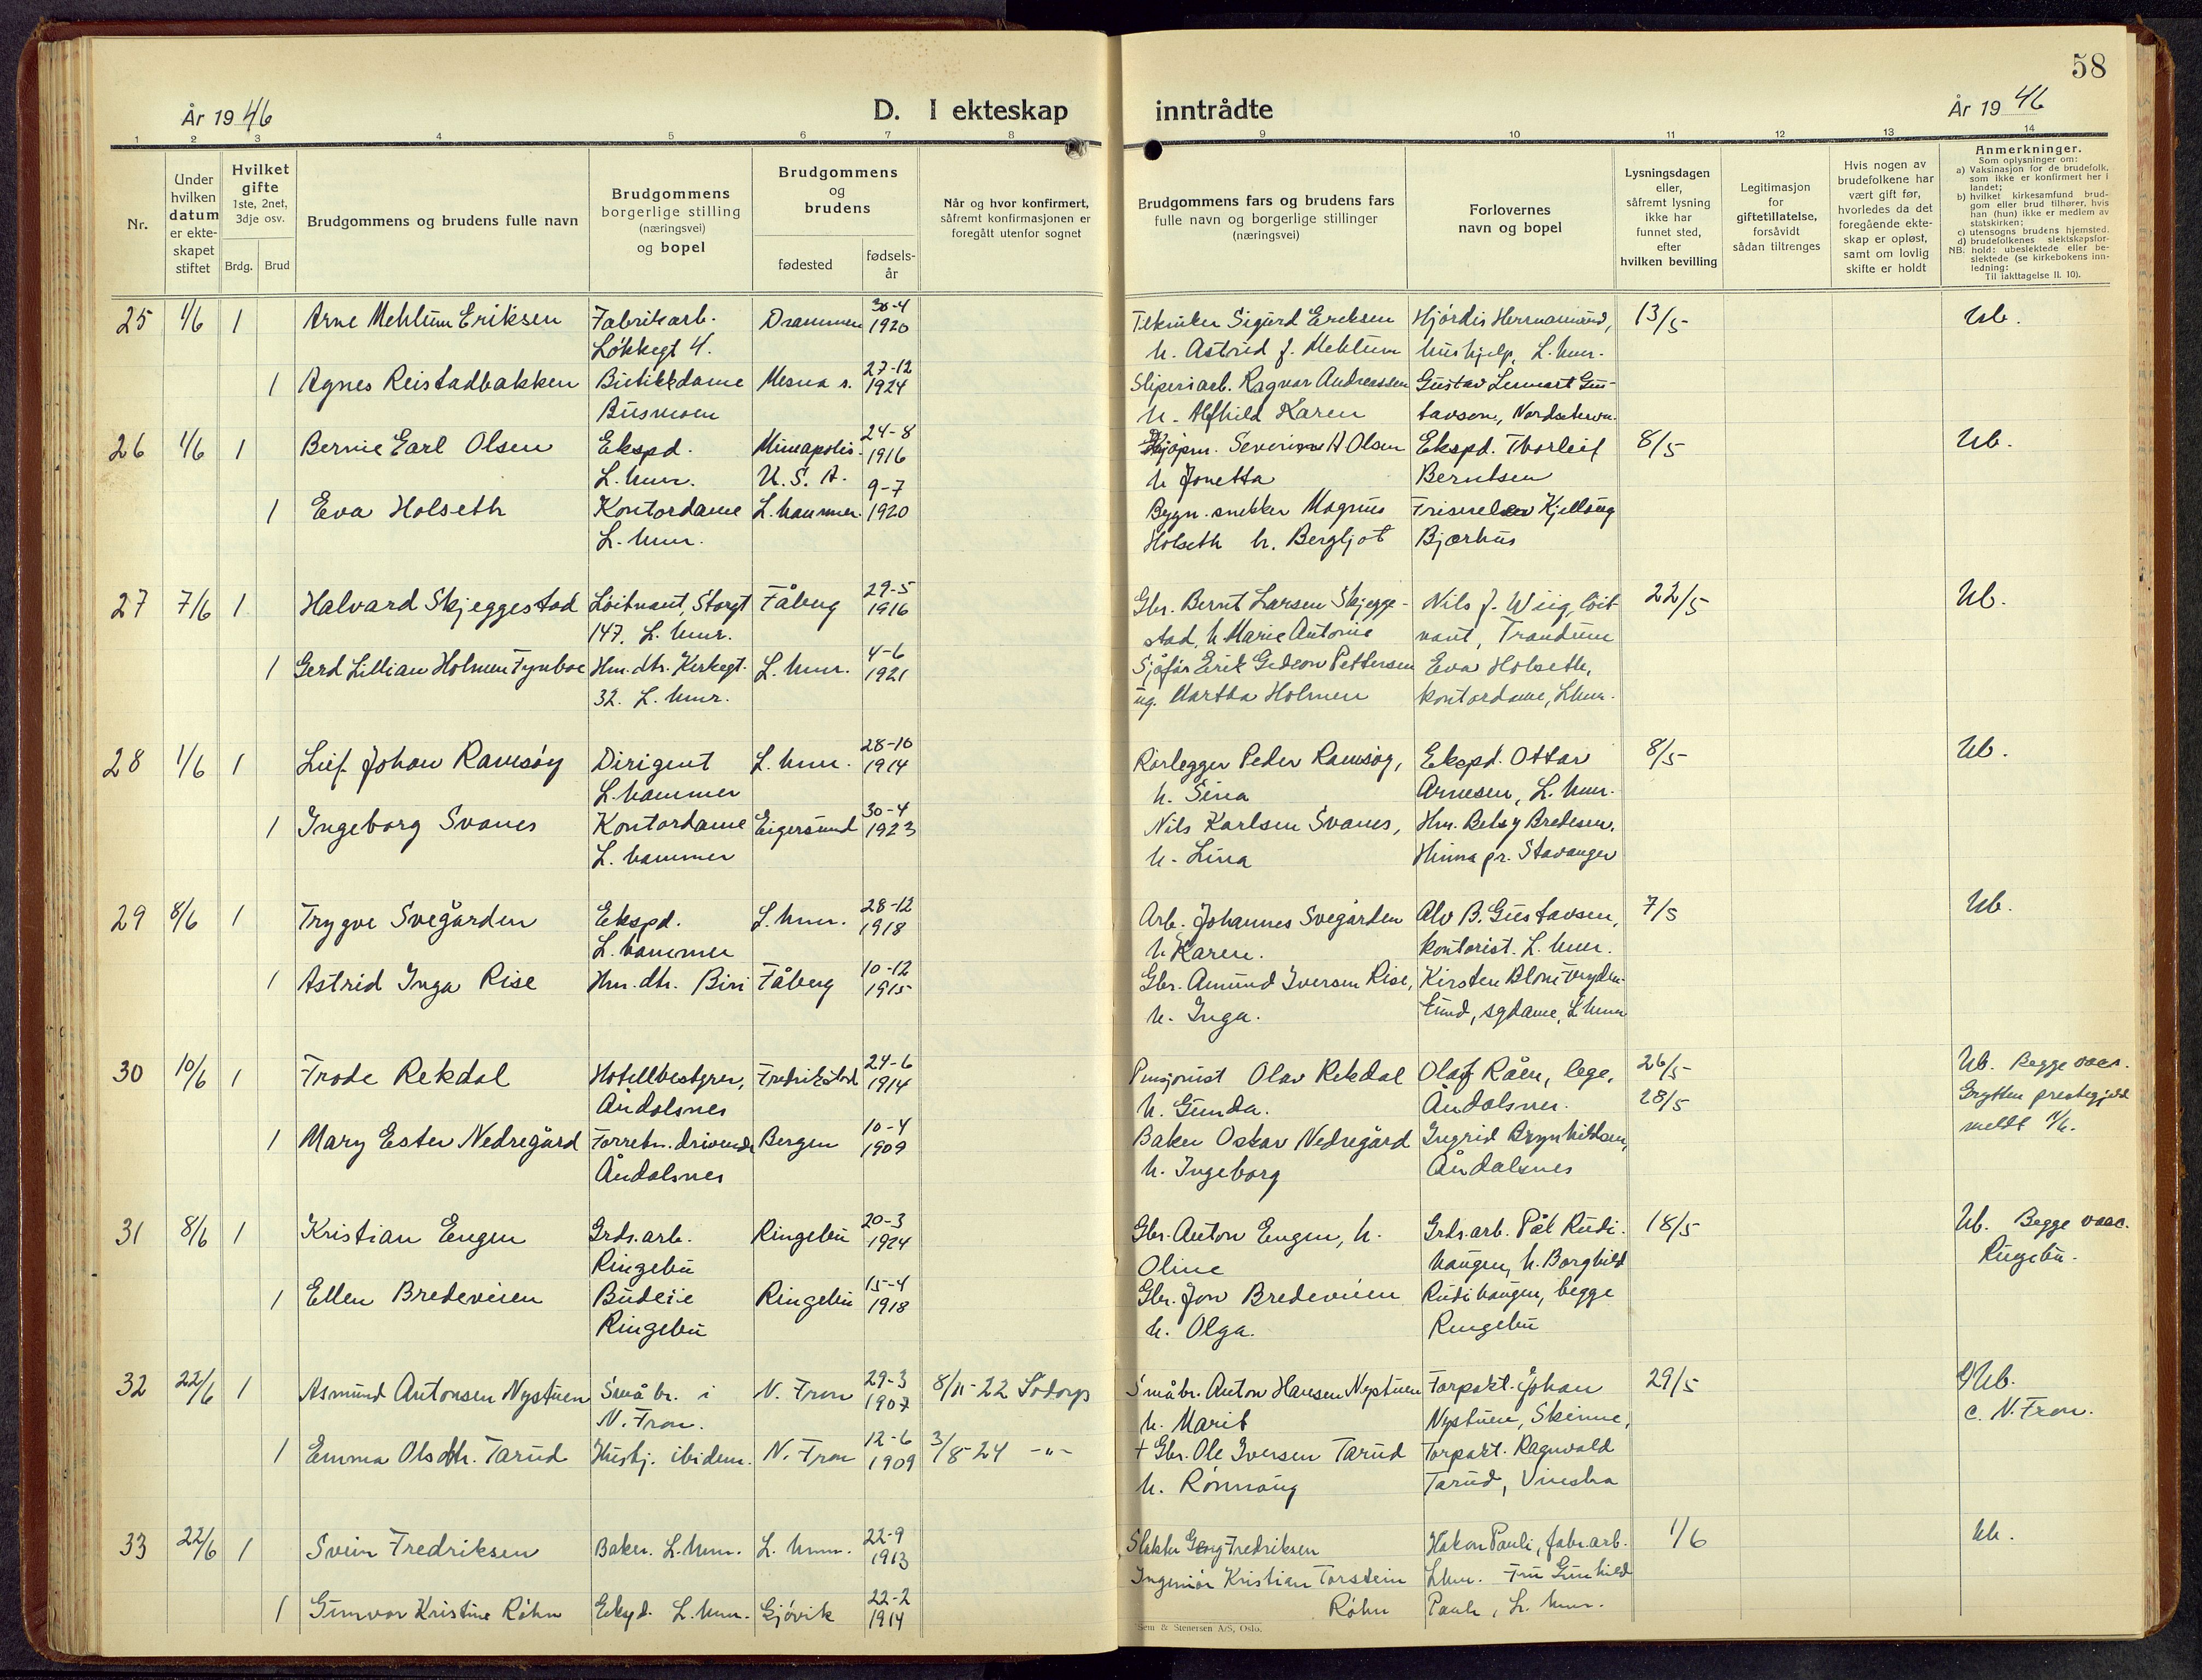 58
År 1946
D. I ekteskap inntrådte
År 1946
1 2 3 4 5 6 7 8 9 10 11 12 13 14
Nr.
Under hvilken datum er ekteskapet stiftet
Hvilket gifte 1ste, 2net, 3dje osv.
Brdg. Brud
Brudgommens og brudens fulle navn
Brudgommens borgerlige stilling (næringsvei) og bopel
Brudgommens og brudens
fødested
fødselsår
Når og hvor konfirmert, såfremt konfirmasjonen er foregått utenfor sognet
Brudgommens fars og brudens fars fulle navn og borgerlige stillinger (næringsvei)
Forlovernes navn og bopel
Lysningsdagen eller, såfremt lysning ikke har funnet sted, efter hvilken bevilling
Legitimasjon for giftetillatelse, forsåvidt sådan tiltrenges
Hvis nogen av brudefolkene har vært gift før, hvorledes da det foregående ekteskap er opløst, samt om lovlig skifte er holdt
Anmerkninger.
Som oplysninger om:
a) Vaksinasjon for de brudefolk, som ikke er konfirmert her i landet;
b) hvilket kirkesamfund brudgom eller brud tilhører, hvis han (hun) ikke er medlem av statskirken;
c) utensogns brudens hjemsted.
d) brudefolkenes slektskapsforhold: ubeslektede eller beslektede (se kirkebokens innledning:
NB.
Til iakttagelse II. 10).
25 1/6 1 Arne Mehlum Eriksen Fabrikarb. Drammen 30-4 1920
Løkkegt 4.
1 Agnes Reistadbakken Butikkdame Mesna s. 27-12 1924
Busmoen
Tekniker Sigurd Eriksen Hjørdis 13/5 Ub.
h. Astrid f. Mehlum hushjelp, L.hmr.
Sliperiarb. Ragnar Andreassen Gustav Lennart Gus-
h. Alfhild Karen tavson,
26 1/6 1 Bernie Earl Olsen Ekspd. Mineapolis. 24-8 1916
L.hmr. U.S.A.
1 Eva Holseth Kontordame L.hammer. 9-7 1920
L.hmr.
Severin A Olsen Ekspd. Thorleif 8/5 Ub.
h Jonetta Berntsen
Bygn.snekker Magnus Kjellaug
Holseth h. Bergljot Bjørhus
27 7/6 1 Halvard Skjeggestad Løitnant, Storgt Fåberg 29-5 1916
147. L.hmr.
1 Gerd Lillian Holmen Tynboe Hm.dtr. Kirkegt. L.hmr. 4-6 1921
32. L.hmr.
Gbr. Bernt Larsen Skjegge- Nils J. Wiig, løit- 22/5 Ub.
stad, h. Marie Antonie nant, Trandum
Sjåfør Erik Gedeon Pettersen Eva Holseth,
ug. Martha Holmen kontordame, Lhmr.
28 1/6 1 Leif Johan Ramsøy Dirigent L.hmr. 28-10 1914
L.hammer
1 Ingeborg Svanes Kontordame Eigersund 30-4 1923
L.hammer
Rørlegger Peder Ramsøy, Ekspd. Ottar 8/5 Ub.
h. Sina Arnesen, L.hmr.
Nils Karlsen Svanes, Hm. Betsy Bredesen,
h. Lina Hinna pr. Stavanger
29 8/6 1 Trygve Svegården Ekspd. L.hmr. 28-12 1918
L.hammer
1 Astrid Inga Rise Hm.dtr. Biri Fåberg 10-12 1915
Arb. Johannes Svegården Alv B. Gustavsen, 7/5 Ub.
h. Karen. kontorist. L.hmr.
Gbr. Amund Iversen Rise, Kirsten
h. Inga. lund, sydame, L.hmr
30 10/6 1 Frode Rekdal Hotellbestyrer, Fredrikstad 24-6 1914
Åndalsnes
1 Mary Ester Nedregård Forretn.drivende Bergen 10-4 1909
Åndalsnes
Pensjonist Olav Rekdal Olaf Råen, lege, 26/5 Ub. Begge vacc.
h. Gunda. Åndalsnes. 28/5 Grytten prestegjeld
Baker Oskar Nedregård Ingrid Brynhildsen, meldt
h. Ingeborg Åndalsnes
31 8/6 1 Kristian Engen Grds.arb. Ringebu 20-3 1924
Ringebu
1 Ellen Bredeveien Budeie Ringebu 15-4 1918
Ringebu
Gbr. Anton Engen, h. Grds.arb. Pål Rudi- 18/5 Ub. Begge vacc.
Oline haugen, h. Borghild Ringebu.
Gbr. Jon Bredeveien Rudihaugen, begge
h. Olga. Ringebu
32 22/6 1 Asmund Antonsen Nystuen Småbr. i N. Fron 29-3 1907 8/11-22 Sødorp
N. Fron.
1 Emma Olsdtr. Tarud Hustj. ibidem. N. Fron 12-6 1909 3/8-24 -"-
Småbr. Anton Hansen Nystuen Forpakt. Johan 29/5 Ub.
h. Marit Nystuen, Skinne, c. N. Fron.
+ Gbr. Ole Iversen Tarud Forpakt. Ragnvald
h. Rønnaug Tarud, Vinstra
33 22/6 1 Svein Fredriksen Baker. L.hmr. L.hmr. 22-9 1913
1 Gunvor Kristine Røhn Eksp. L.hmr. Gjøvik 22-2 1914
Slakter Georg Fredriksen Hakon Pauli, fabr.arb. 1/6 Ub.
Ingeniør Kristian Torstein Lhmr. Fru Gunhild
Røhn Pauli, L.hmr.
Sem & Stenersen A/S, Oslo.